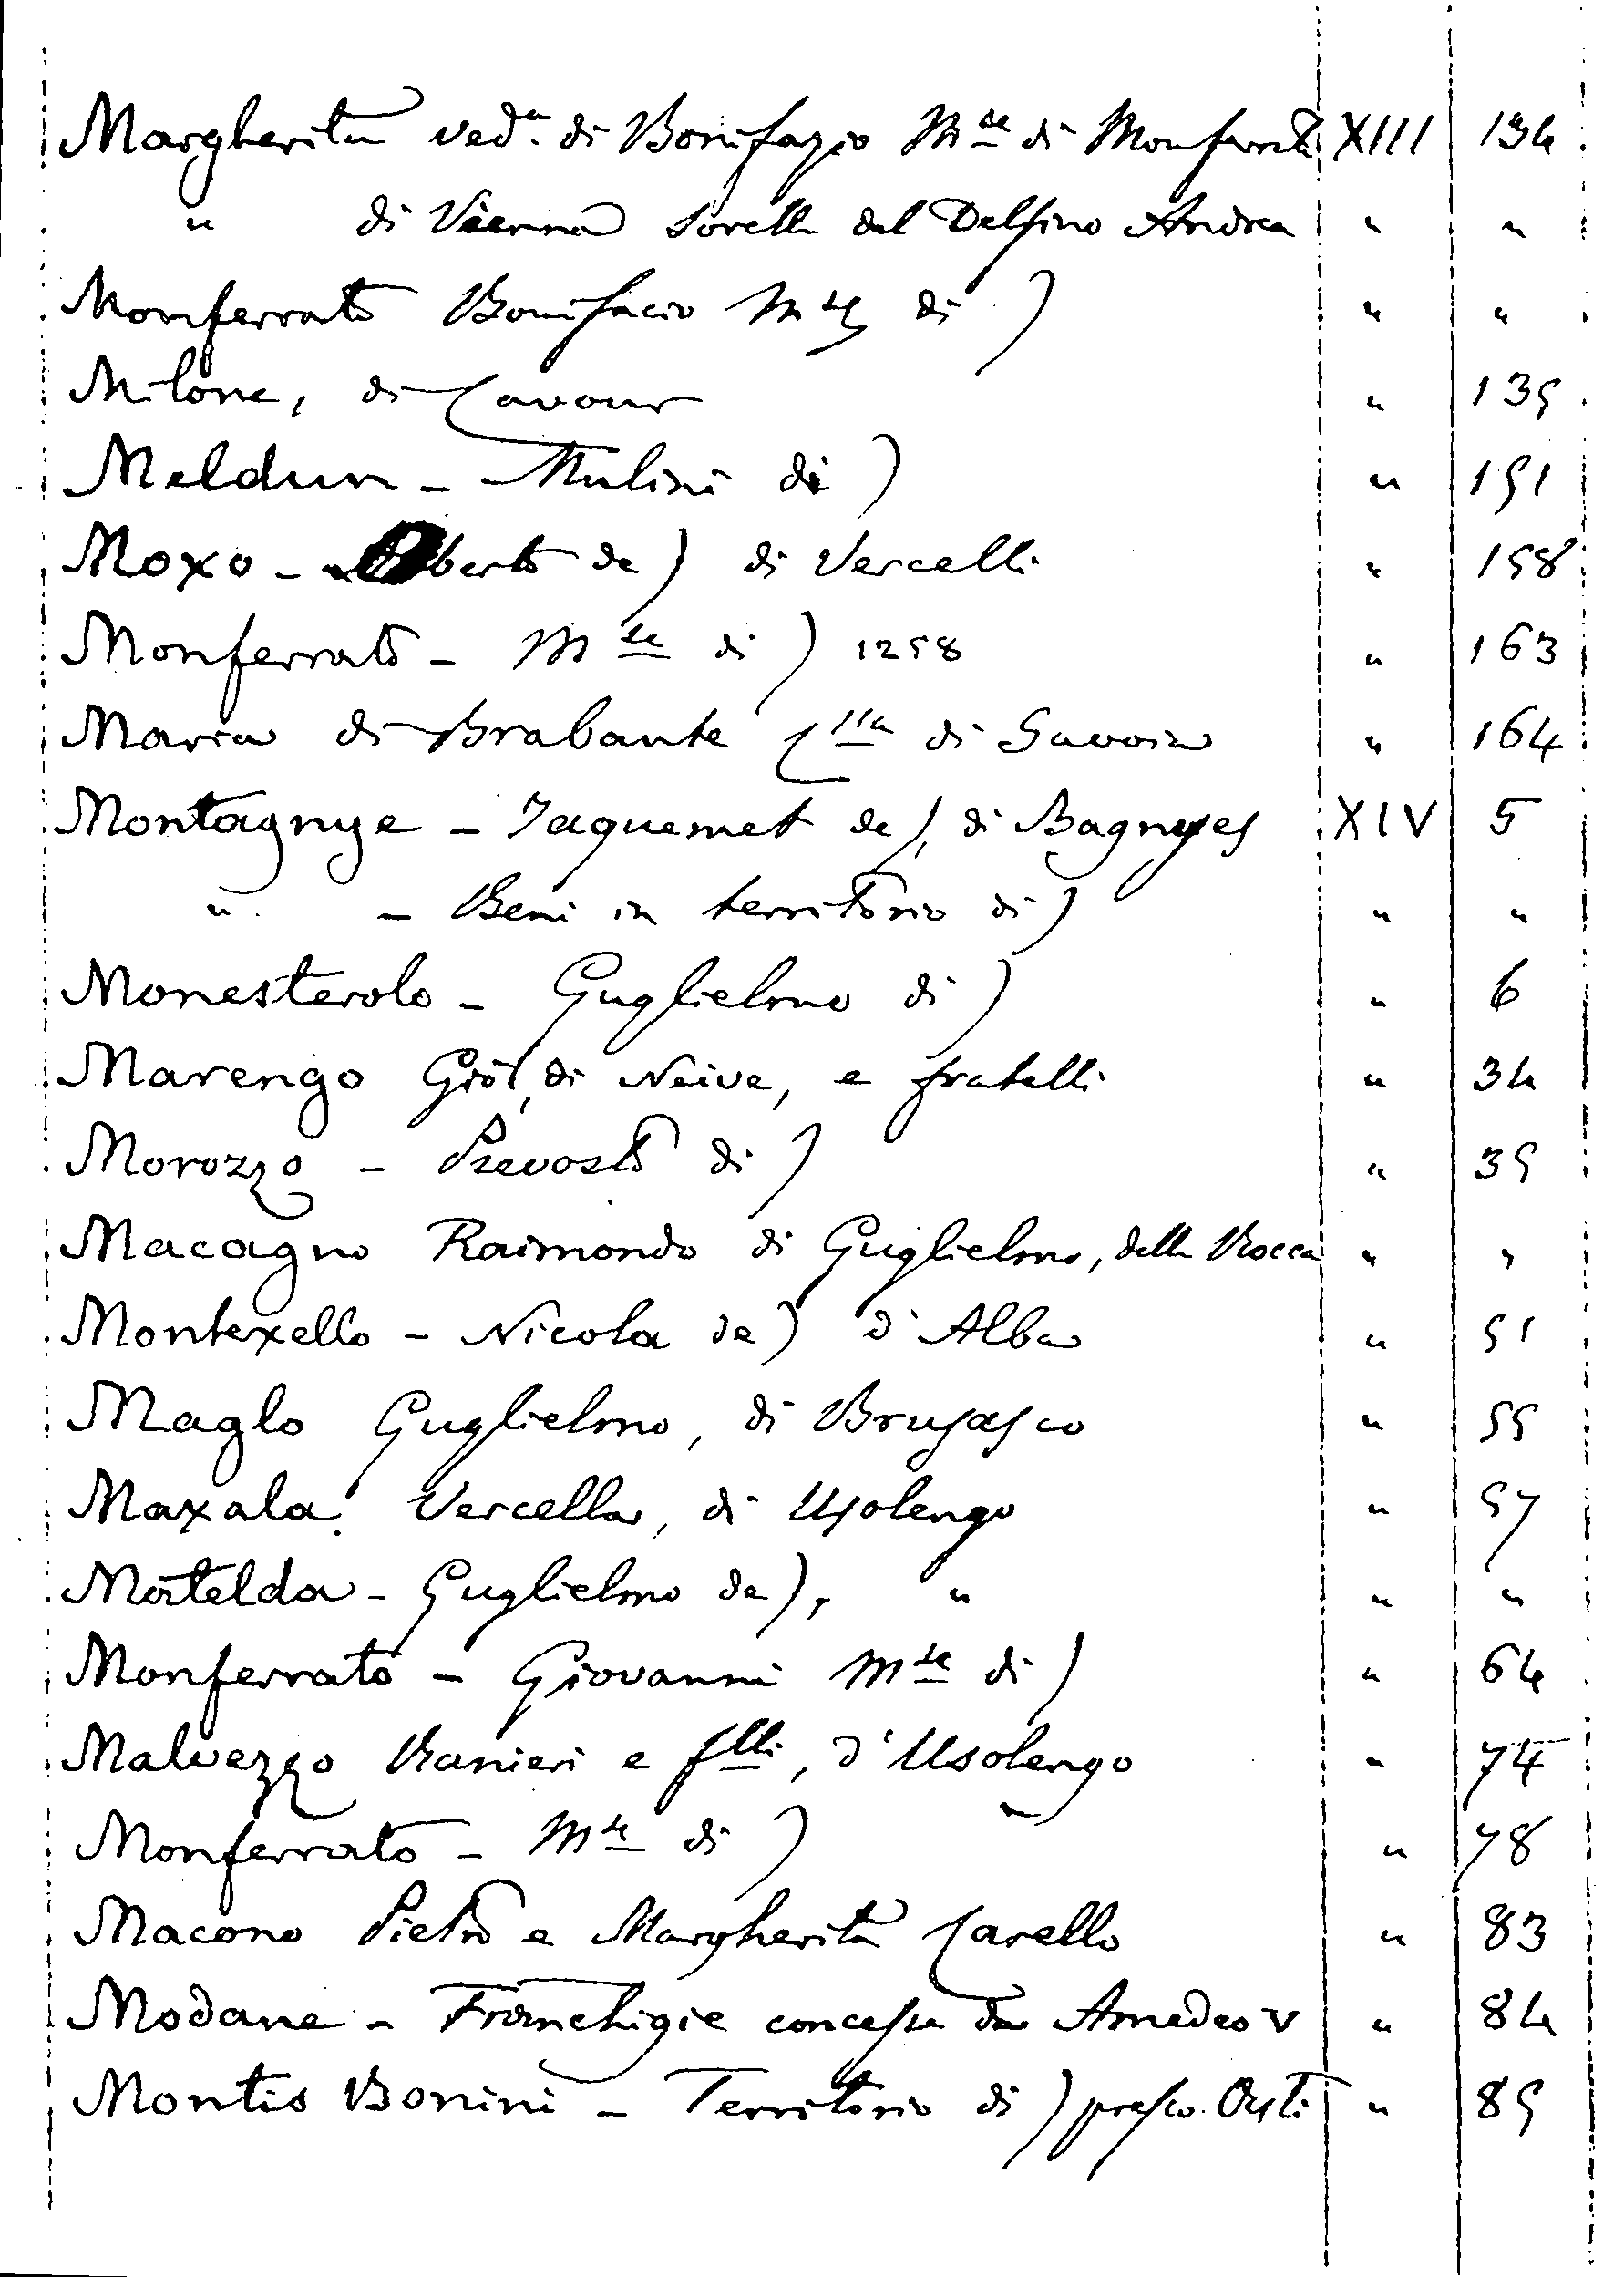 Margherita ved.a di Bonifazio Mse di Monferrato XIII 134
" di Vienna sorella del Delfino Andrea " "
Monferrato Bonifacio Mse di ) " "
Milone, di Cavour " 135
Meldun - Mulini di ) " 151
Moxo - berto de ) di Vercelli " 158
Monferrato - Mse di ) 1258 " 163
Maria di Brabante Cssa di Savoia " 164
Montagnye - Jaquemet de ), di Bagnyes XIV 5
" - Beni in territorio di ) " "
Monesterolo - Guglielmo di ) " 6
Marengo Gio, di Neive, e fratelli " 34
Morozzo - Prevosto di ) " 35
Macagno Raimondo di Guglielmo, della Rocca " "
Montexello - Nicola de ) d'Alba " 51
Maglo Guglielmo, di Brusasco " 55
Maxala Vercella, di Usolengo " 57
Matelda - Guglielmo de ), " " "
Monferrato - Giovanni Mse di ) " 64
Malvezzo Ranieri e flli, d'Usolengo " 74
Monferrato - Mse di ) " 78
Macono Pietro e Margherita Carello " 83
Modane - Franchigie concesse da Amedeo V " 84
Montis Bonini - Territorio di ) presso Asti " 85